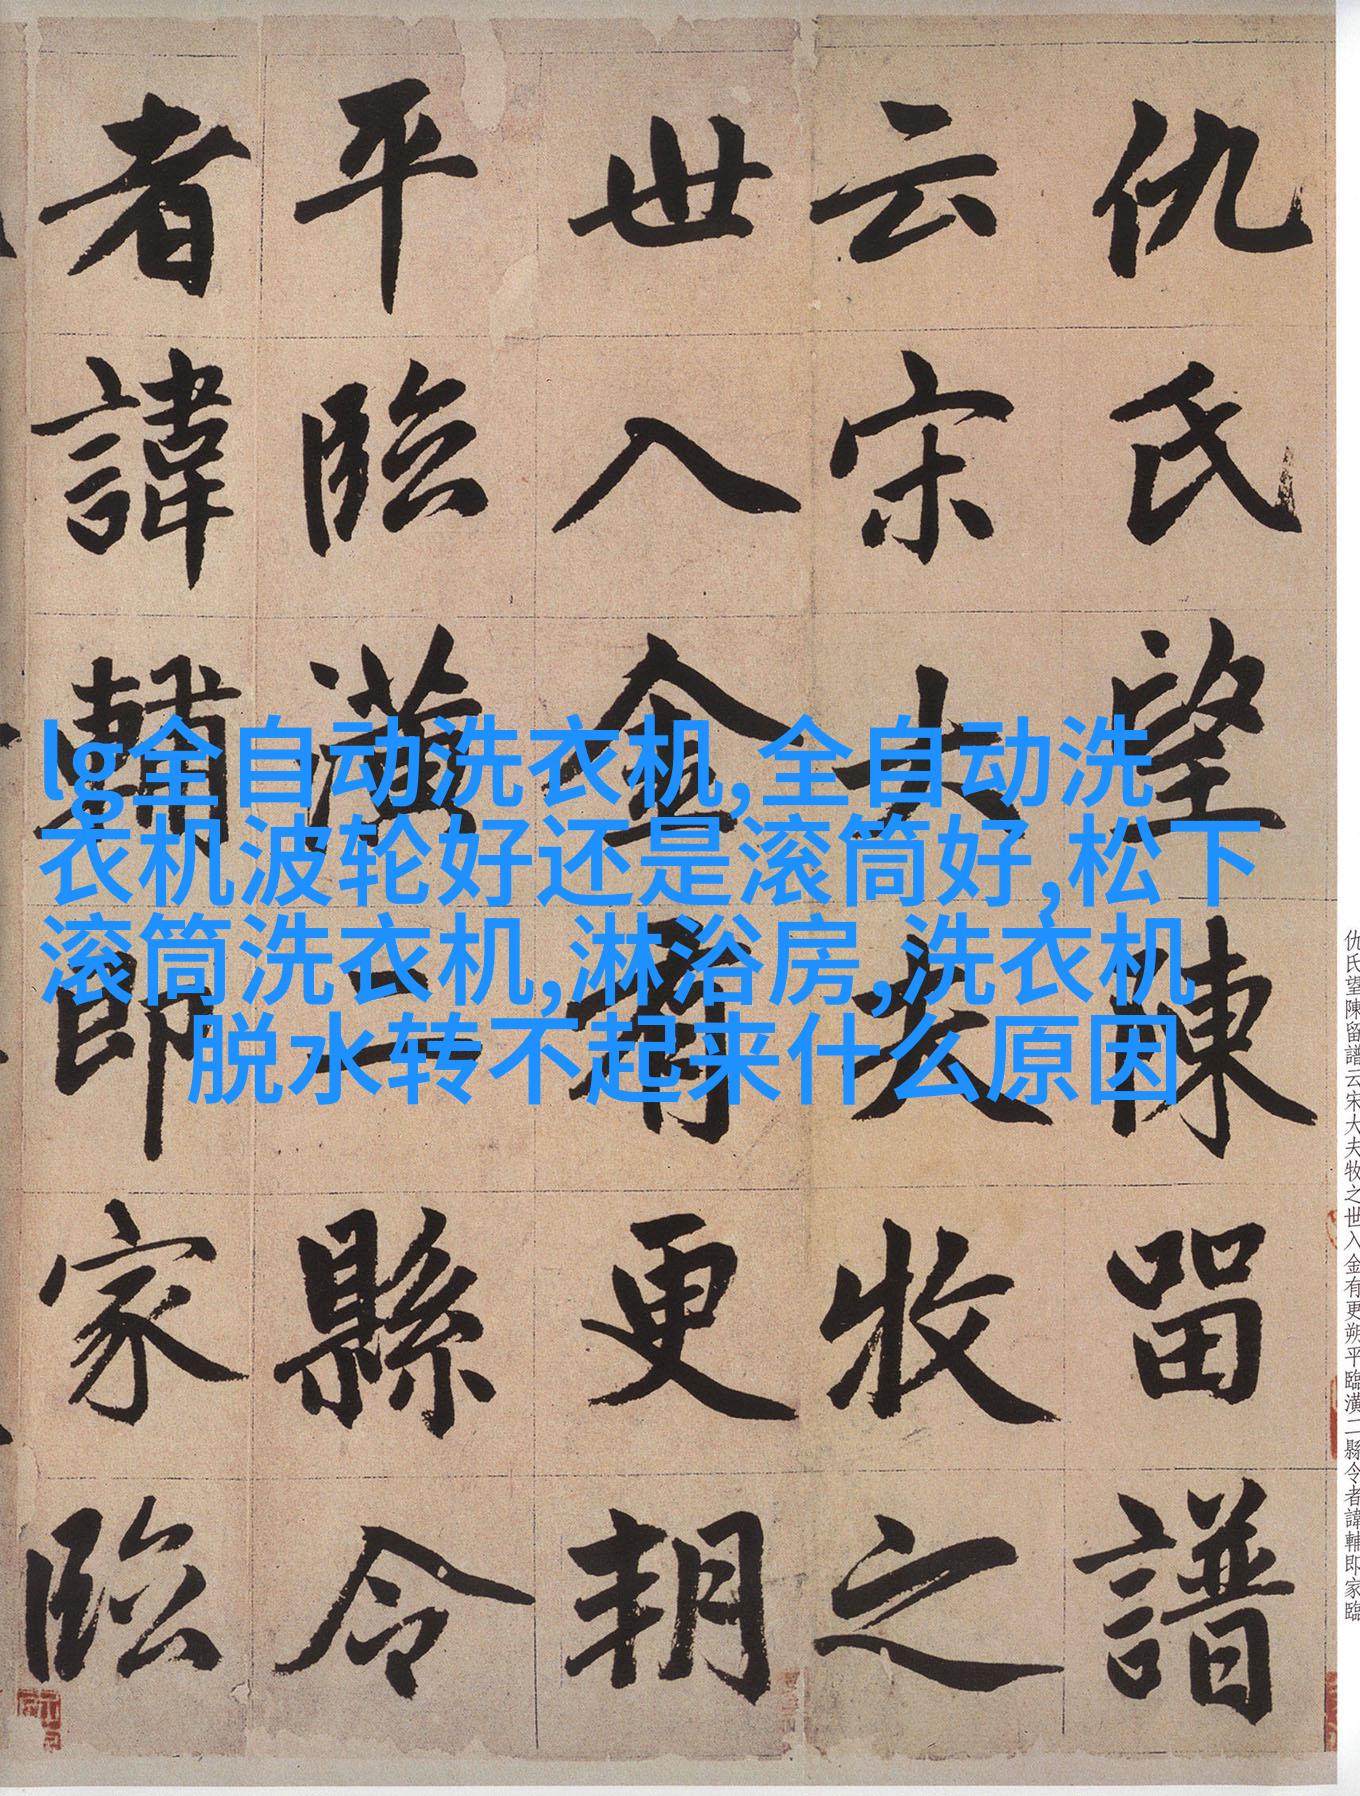 lg全自动洗衣机,全自动洗
衣机波轮好还是滚筒好,松下
滚筒洗衣机,淋浴房,洗衣机
脱水转不起来什么原因
仇氏望陳留譜
云宋大夫牧之
世入金有更朔
平臨潢二縣令
者諱輔即家臨
仇氏望陳留譜云宋大夫牧之世入金有更朔平臨潢二縣令者諱輔即家臨